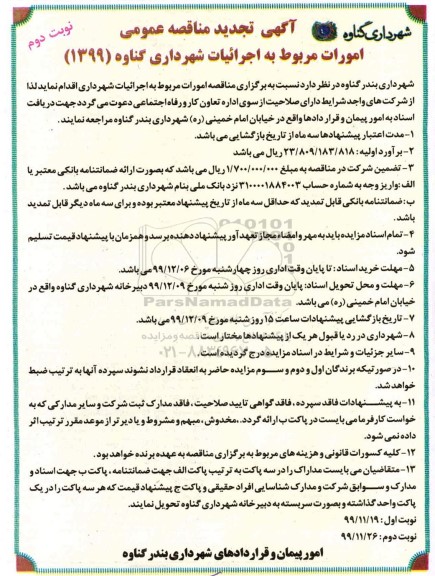 شهرداری گناوه
آگهی تجدید مناقصه عمومی
نوبت دوم
امورات مربوط به اجرائیات شهرداری گناوه (۱۳۹۹)
شهرداری بندر گناوه در نظر دارد نسبت به برگزاری مناقصه امورات مربوط به اجرائیات شهرداری اقدام نماید لذا
از شرکت های واجد شرایط دارای صلاحیت از سوی اداره تعاون کار و رفاه اجتماعی دعوت می گردد جهت دریافت
اسناد به امور پیمان و قرار دادها واقع در خیابان امام خمینی (ره) شهرداری بندر گناوه مراجعه نمایند.
۱-مدت اعتبار پیشنهادها سه ماه از تاریخ بازگشایی می باشد.
۲- برآورد اولیه: ۲۳/۸۰۹/۱۸۳/۸۱۸ ریال می باشد
۳- تضمین شرکت در مناقصه به مبلغ ۱/۷۰۰/۰۰۰/۰۰۰ ریال می باشد که بصورت ارائه ضمانتنامه بانکی معتبر یا
الف: واریز وجه به شماره حساب ۳۱۰۰۰۰۱۸۸۴۰۰۳ نزد بانک ملی بنام شهرداری بندر گناوه می باشد.
ب: ضمانتنامه بانکی قابل تمدید که حداقل سه ماه از تاریخ پیشنهاد معتبر بوده و برای سه ماه دیگر قابل تمدید
باشد.
۴- تمام اسناد مزایده باید به مهر و امضاء مجاز تعهد آور پیشنهاد دهنده برسد و همزمان با پیشنهاد قیمت تسلیم
شود.
۵- مهلت خرید اسناد: تا پایان وقت اداری روز چهارشنبه مورخ ۹۹/۱۲/۰۶ می باشد.
۶- مهلت و محل تحویل اسناد: پایان وقت اداری روز شنبه مورخ ۹۹/۱۲/۰۹ دبیرخانه شهرداری گناوه واقع در
خیابان امام خمینی (ره) می باشد.
۷- تاریخ بازگشایی پیشنهادات ساعت ۱۵ روز شنبه مورخ ۹۹/۱۲/۰۹ می باشد.
۸-شهرداری در رد یا قبول هر یک از پیشنهادها مختار است
۹- سایر جزئیات و شرایط در اسناد مزایده درج گردیده است.
۱۰- در صورتیکه برندگان اول و دوم و سوم مزایده حاضر به انعقاد قرارداد نشوند سپرده آنها به ترتیب ضبط
خواهد شد.
۱۱- به پیشنهادات فاقد سپرده، فاقد گواهی تایید صلاحیت، فاقد مدارک ثبت شرکت و سایر مدارکی که به
خواست کارفرما می بایست در پاکت ب ارائه گردد.،مخدوش، مبهم و مشروط و یا دیرتر از موعد مقرر ترتیب اثر
داده نمی شود.
۱۲-کلیه کسورات قانونی و هزینه های مربوط به برگزاری مناقصه به عهده برنده خواهد بود.
۱۳-متقاضیان می بایست مدارک را در سه پاکت به ترتیب پاکت الف جهت ضمانتنامه، پاکت ب جهت اسناد و
مدارک و سوابق شرکت و مدارک شناسایی افراد حقیقی و پاکت ج پیشنهاد قیمت که هر سه پاکت را در یک
پاکت واحد گذاشته و بصورت سربسته به دبیرخانه شهرداری گناوه تحویل نمایند.
نوبت اول: ۹۹/۱۱/۱۹
نوبت دوم: ۹۹/۱۱/۲۶
امور پیمان و قراردادهای شهرداری بندر گناوه
ParsNamadData